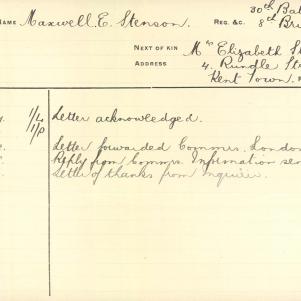 NAME Maxwell. E. Stenson. REG. &C. 30th Bat
8th Bri
NEXT OF KIN Mrs Elizabeth St
ADDRESS 4. Rundle Str
Kent Town.
1/4 Letter acknowledged.
1/0
Letter forwarded Commrs. London
Reply from Commrs. Information sen
Letter of thanks from inquirer.